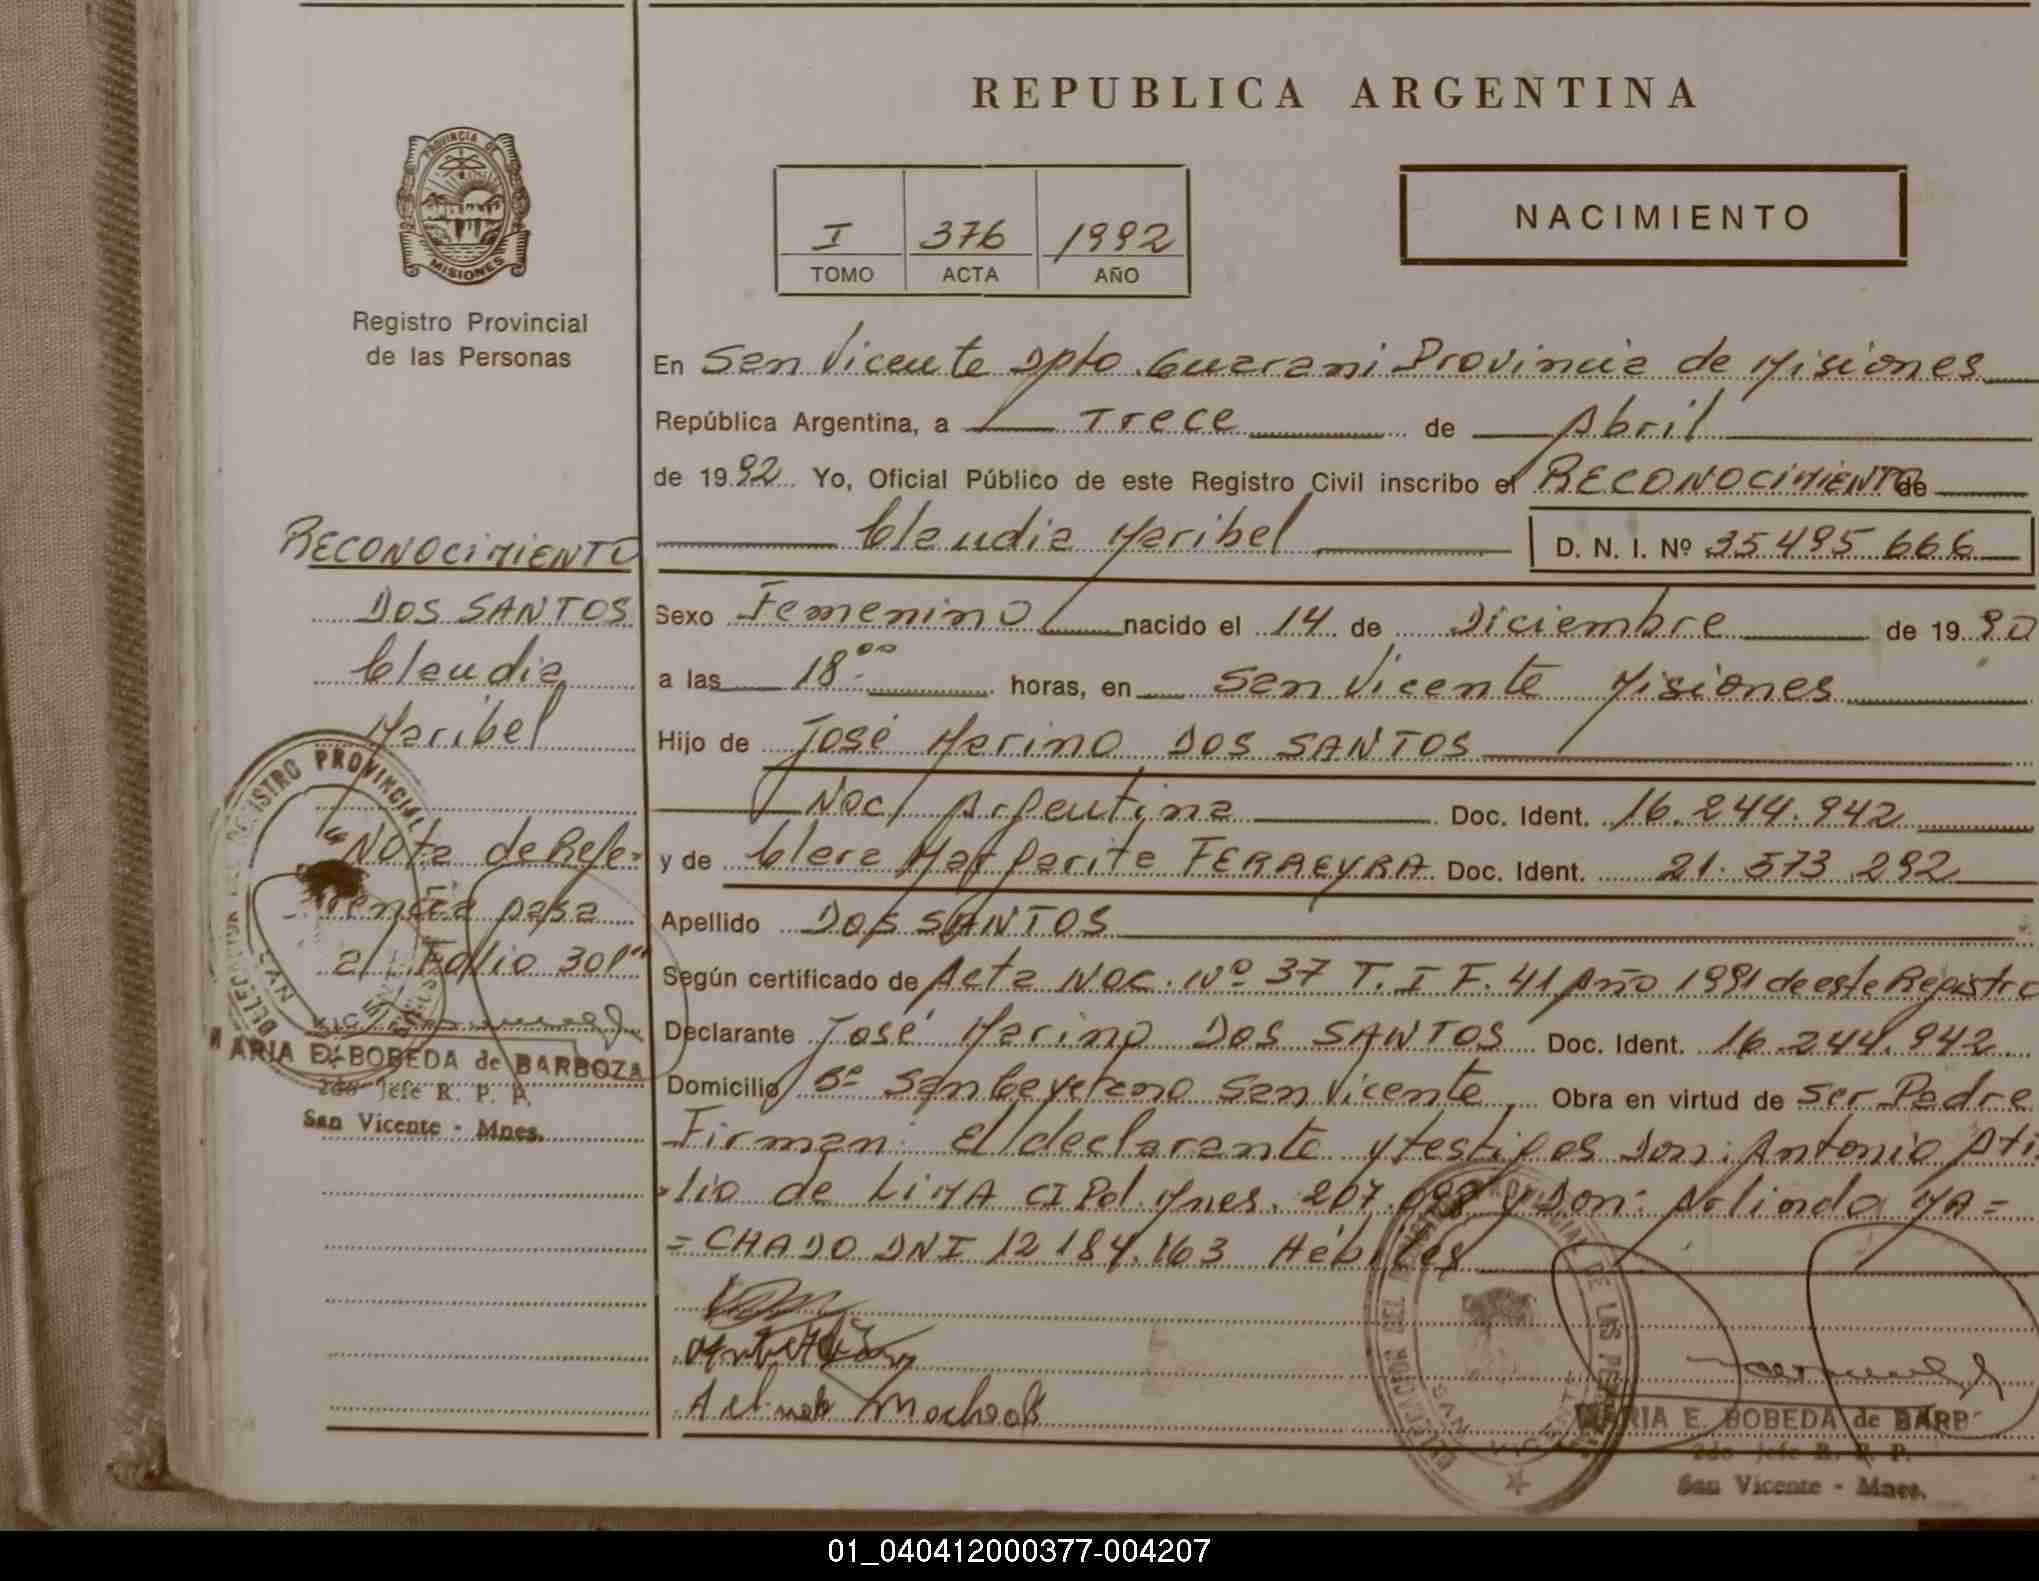 REPUBLICA ARGENTINA
PROVINCIA DE
MISIONES
Registro Provincial
de las Personas
I 376 1992
TOMO ACTA AÑO
NACIMIENTO
En San Vicente Dpto. Guarani Provincia de Misiones
República Argentina, a Trece de Abril
de 1992 Yo, Oficial Público de este Registro Civil inscribo el RECONOCIMIENTO de
Claudia Maribel D. N. I. Nº 35495 666
Sexo Femenino nacido el 14 de Diciembre de 1990
a las 18.00 horas, en San Vicente Misiones
Hijo de José Marino DOS SANTOS
Nac. Argentina Doc. Ident. 16.244.942
y de Clara Margarita FERREYRA Doc. Ident. 21.573.292
Apellido DOS SANTOS
Según certificado de Acta Nac. Nº 37 T. I F. 41 Año 1991 de este Registro
Declarante José Marino DOS SANTOS Doc. Ident. 16.244.942
Domicilio Bº San Cayetano San Vicente Obra en virtud de ser Padre
Firman: El declarante y testigos Don: Antonio Ati=
=lio de LIMA CI Pol. Mnes. 207.098 y Don: Arlindo MA=
=CHADO DNI 12 184.163 Hábiles
RECONOCIMIENTO
DOS SANTOS
Claudia
Maribel
"Nota de Refe=
rencia pasa
al Folio 301"
MARIA E. BOBEDA de BARBOZA
2do Jefe R. P. P.
San Vicente - Mnes.
Machado
MARIA E. BOBEDA de BARB
2do Jefe R. P. P.
San Vicente - Mnes.
01_040412000377-004207